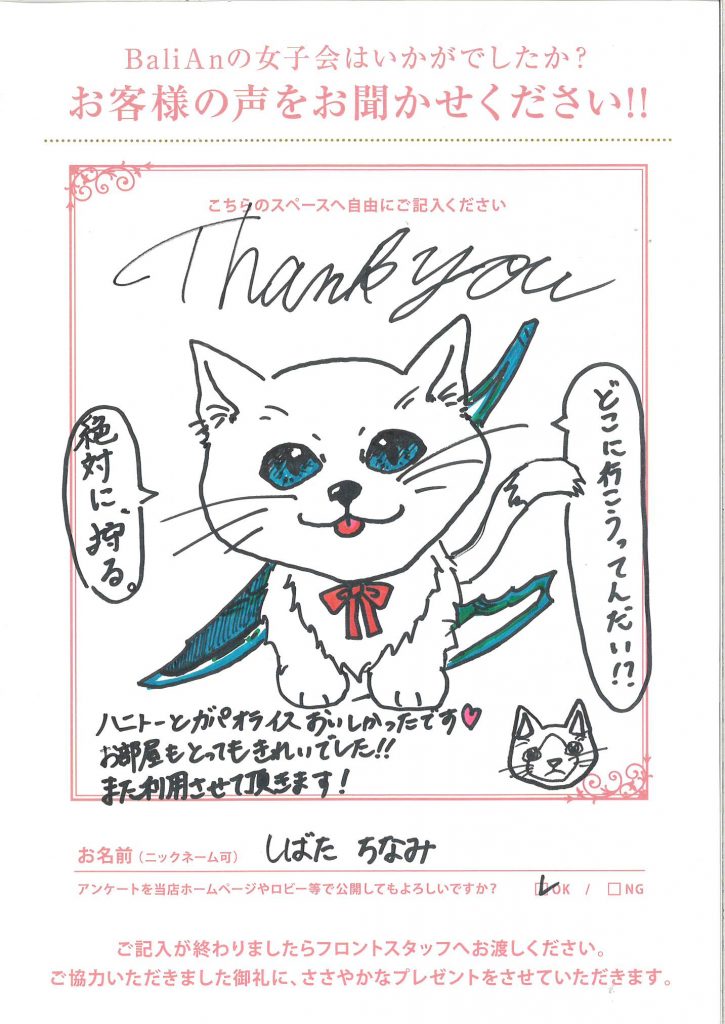 BaliAnの女子会はいかがでしたか?
お客様の声をお聞かせください!!
こちらのスペースへ自由にご記入ください
Thank you
どこに行こうってんだい!?
絶対に、狩る。
ハニトーとガパオライスおいしかったです♡
お部屋もとってもきれいでした!!
また利用させて頂きます!
お名前(ニックネーム可) しばた ちなみ
アンケートを当店ホームページやロビー等で公開してもよろしいですか? ☑OK / □NG
ご記入が終わりましたらフロントスタッフへお渡しください。
ご協力いただきました御礼に、ささやかなプレゼントをさせていただきます。